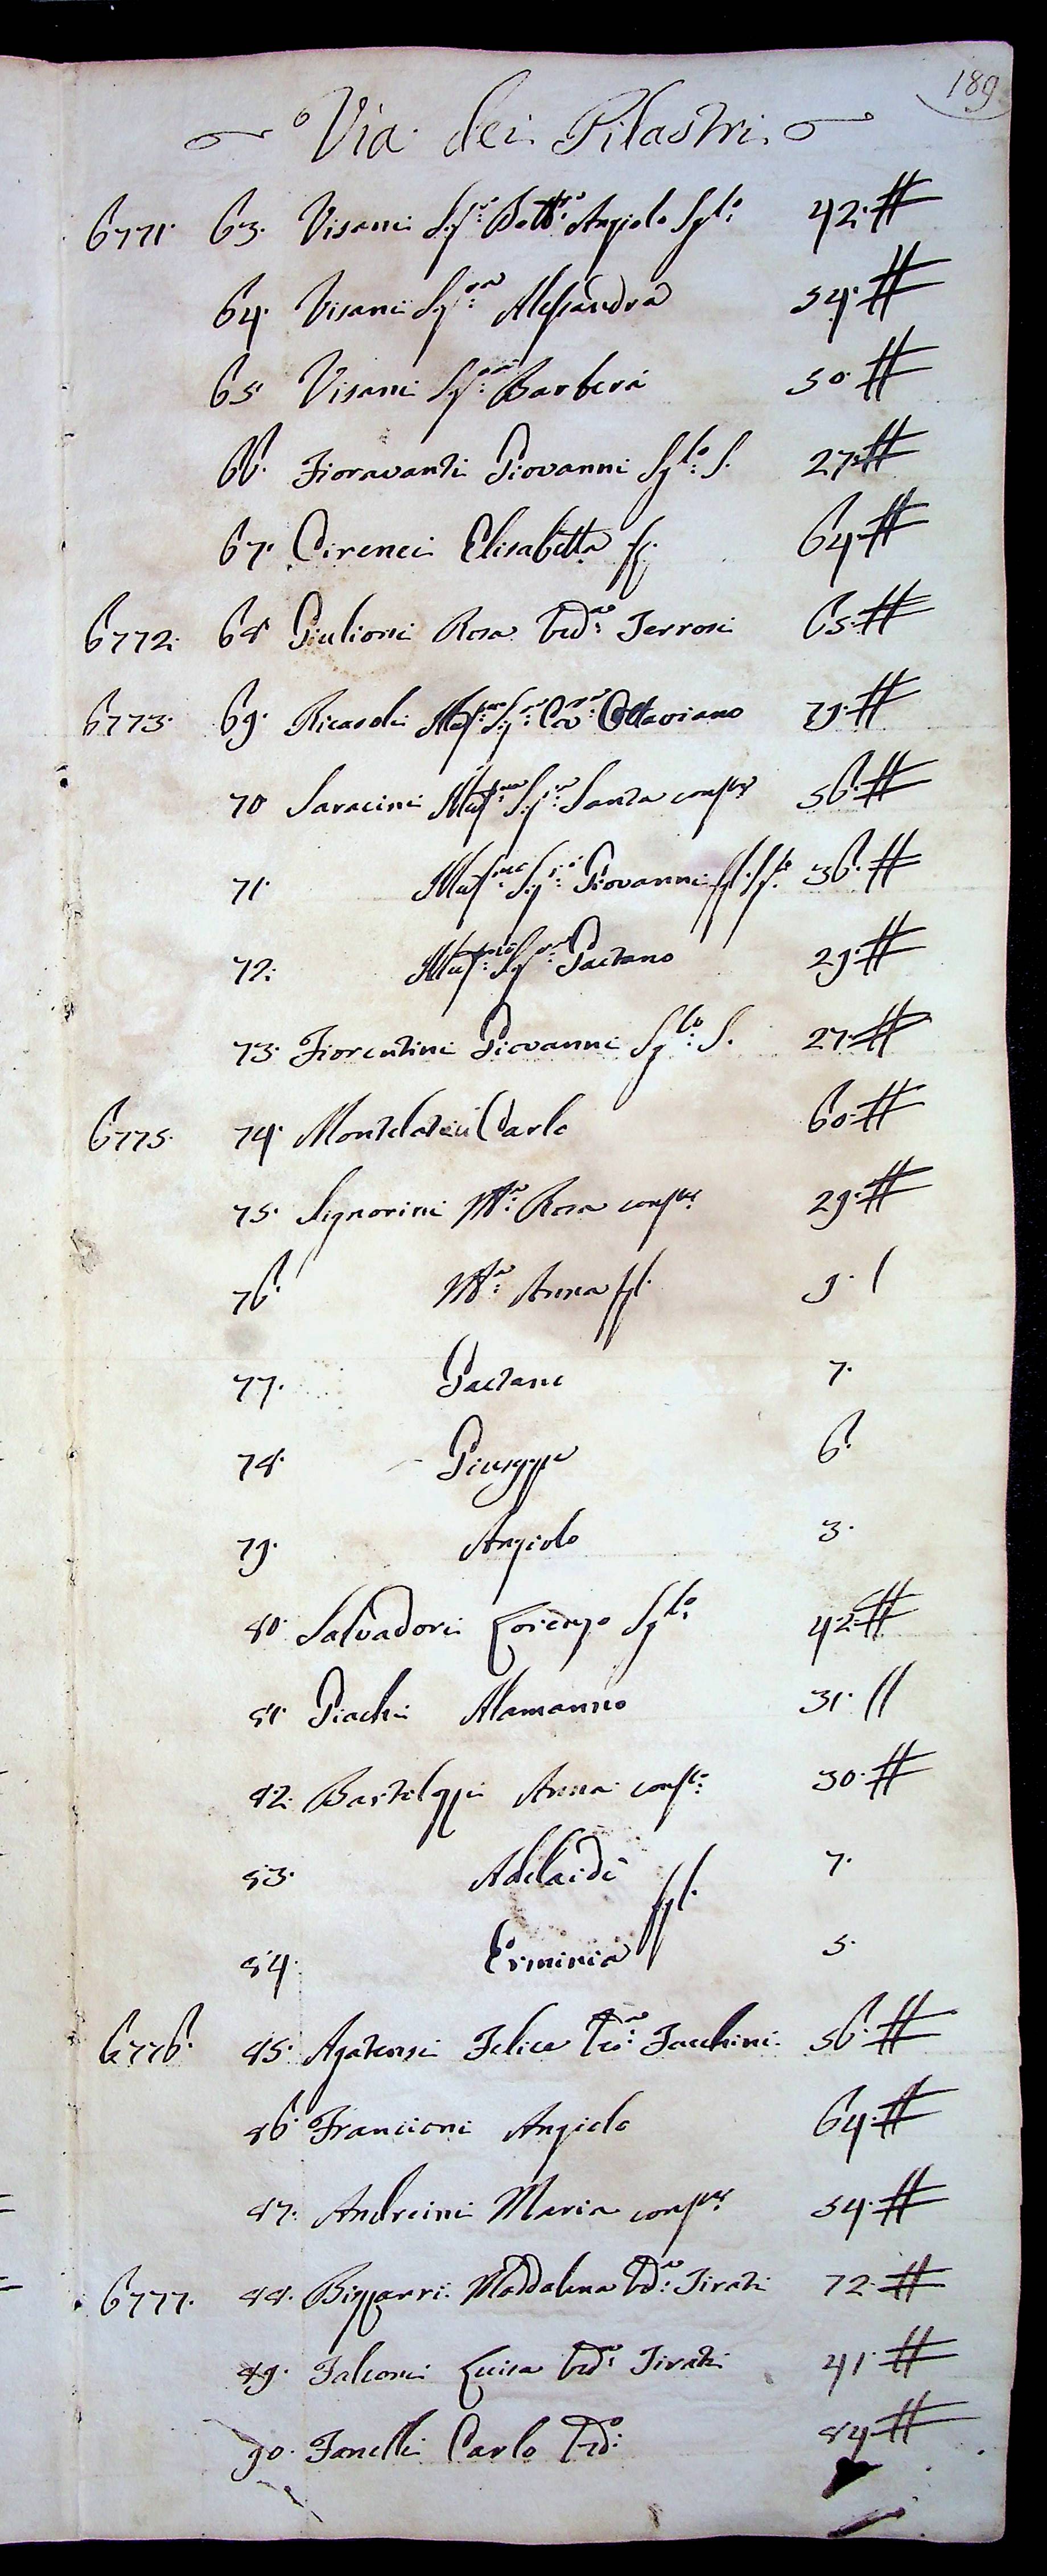 189
Via dei Pilastri
6771. 63. Visani Sig.re Dott.re Angiolo Sg.lo 42. #
64. Visani Sig.ra Alessandra 54. #
65 Visani Sig.ra Barbera 50. #
66. Fioravanti Giovanni Sg.lo S. 27. #
67. Cirenei Elisabetta 64. #
6772. 68 Giulioni Rosa Ved.a Ferrosi 65. #
6773. 69. Ricasoli Ill.mo Sig.re Cav.re Ottaviano 79. #
70 Saracini Ill.ma Sig.ra Santa conf.ge 56. #
71. Ill.mo Sig.re Giovanni ffl. 36. #
72. Ill.mo Sig.re Gaetano 29. #
73. Fiorentini Giovanni Sg.lo S. 27. #
6775. 74. Montelatici Carlo 60. #
75. Signorini M.a Rosa conf.ge 29. #
76. M.a Anna ffl. 9. /
77. Gaetano 7.
78. Giuseppe 6.
79. Angiolo 3.
80. Salvadori Lorenzo Sg.lo 42. #
81. Giachi Alamanno 31. //
82. Bartoloppi Anna conf.e 30. #
83. Adelaide 7.
ffl.
84. Erminia 5.
6776. 85. Agatensi Felice Ve.o Facchini 56. #
86. Francioni Angiolo 64. #
87. Andreini Maria conf.ge 54. #
6777. 88. Bizzarri Maddalena Vd.a Tirati 72. #
89. Falconi Luisa Ved.a Tirati 41. #
90. Fanelli Carlo Ved.o 84. #